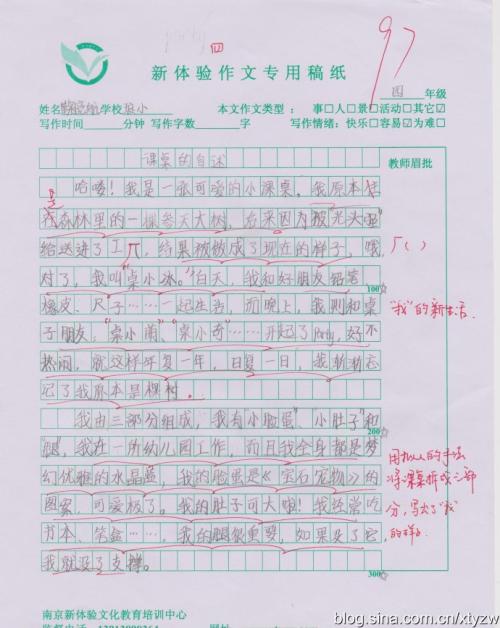 party
四
97
新体验作文专用稿纸
四 年级
姓名 学校 小 本文作文类型： 事□人□景□活动□其它☑
写作时间 分钟 写作字数 字 写作情绪：快乐□容易☑为难□
课桌的自述
教师眉批
哈喽！我是一张可爱的小课桌。我原本住
是
在森林里的一棵参天大树，后来因为被“光头强”
给送进了工厂，结果被做成了现在的样子，哦，
厂（ ）
对了，我叫“桌小冰。”白天，我和好朋友铅笔、
100☆
橡皮、尺子……一起生活，而晚上，我则和桌
“我”的新生活．
子朋友：“桌小萌”、“桌小奇”……开起了Party，好不
热闹，就这样年复一年，日复一日，我渐渐忘
记了我原本是棵树。
我由三部分组成，我有“小脸蛋”、“小肚子”和
200☆
腿，我在一所幼儿园工作，而且我全身都是梦
用拟人的手法
幻优雅的水晶蓝，我的脸蛋是《宝石宠物》的
将课桌拆成三部
图案，可爱极了。我的肚子可大啦！我经常吃
分，写出了“我”
书本、笔盒……，我的腿很重要，如果没了它，
的样。
我就没了支撑。
300☆
南京新体验文化教育培训中心
blog.sina.com.cn/xtyzw